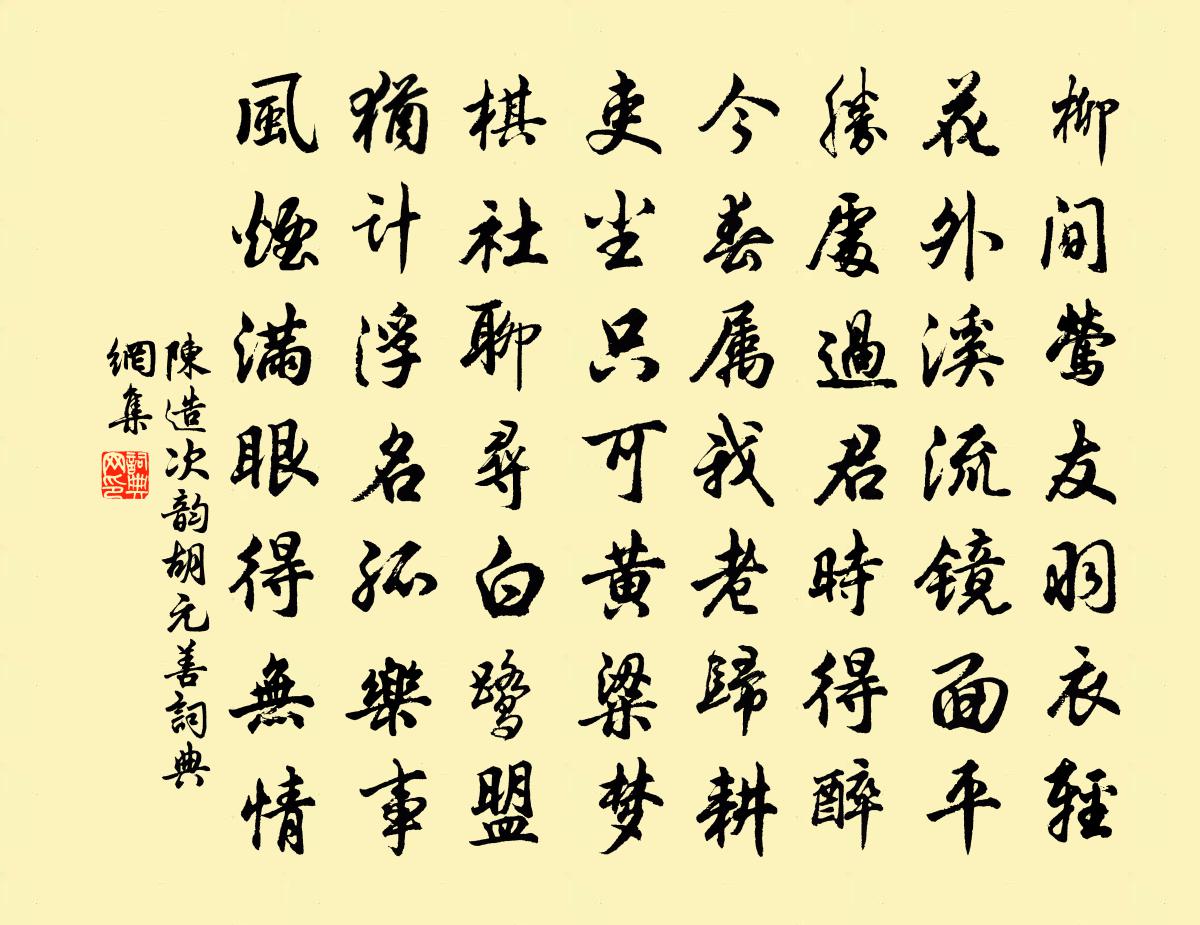 柳间莺友羽衣轻
花外溪流镜面平
勝處過君時得醉
今春属我老歸耕
吏尘只可黄粱梦
棋社聊尋白鹭盟
猶计浮名孤樂事
風煙满眼得無情
陳造次韵胡元善詞典
網集
詞典网印